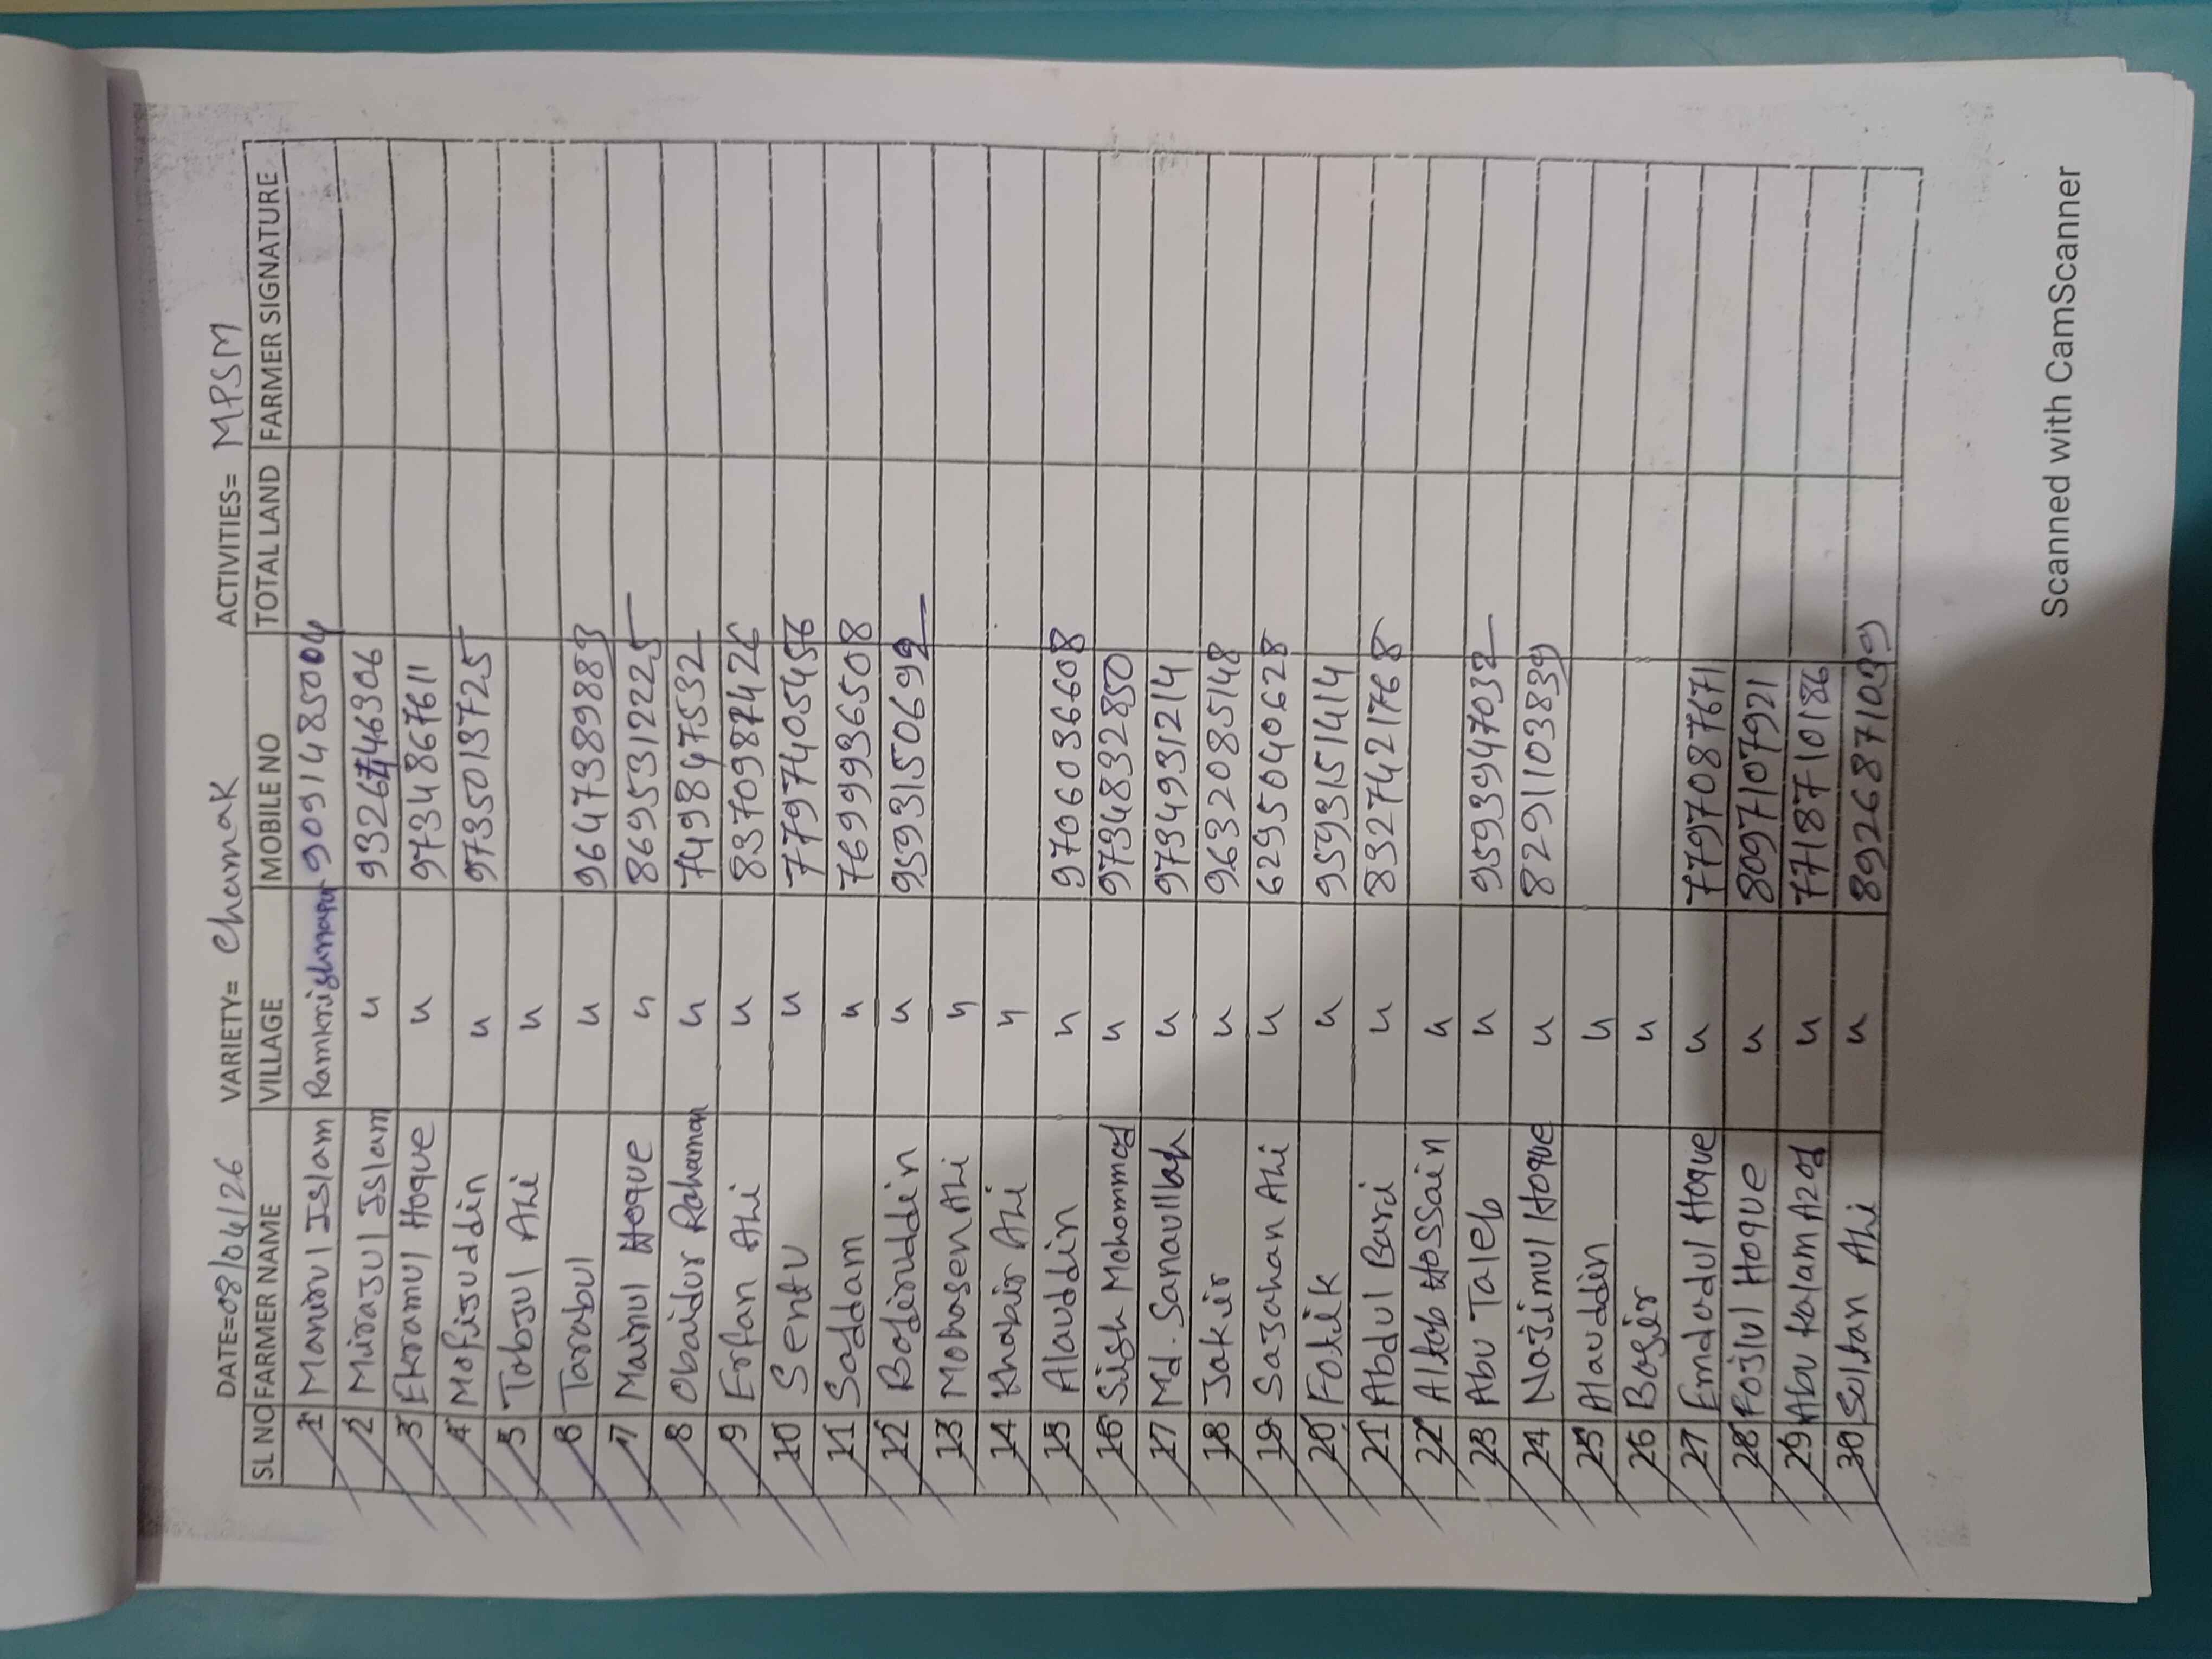 DATE=08/04/26 VARIETY= Chamak ACTIVITIES= MPSM
SL NO FARMER NAME VILLAGE MOBILE NO TOTAL LAND FARMER SIGNATURE
1 Manirul Islam Ramkrishnapur 9091485004
2 Mirajul Islam u 9326746306
3 Ekramul Hoque u 9734867611
4 Mofijuddin u 9735013725
5 Tobjul Ali u
6 Tarabul u 9647389883
7 Mainul Hoque u 8695312225
8 Obaidur Rahaman u 749847532
9 Erfan Ali u 8370987426
10 Sentu u 7797405456
11 Saddam u 7699936508
12 Bodiruddin u 9593150692
13 Mohasen Ali u
14 Khabir Ali u
15 Alauddin u 9706036608
16 Sish Mohammad u 9734832850
17 Md. Sanaullah u 9734931214
18 Jakir u 9632085148
19 Sajahan Ali u 6295040628
20 Fotik u 9593151414
21 Abdul Bari u 8327421768
22 Altab Hossain u
23 Abu Taleb u 9593947032
24 Najimul Hoque u 8291103839
25 Alauddin u
26 Basir u
27 Emdadul Hoque u 7797087671
28 Fojlul Hoque u 8097107921
29 Abu Kalam Azad u 7718710186
30 Sultan Ali u 8926871039
Scanned with CamScanner